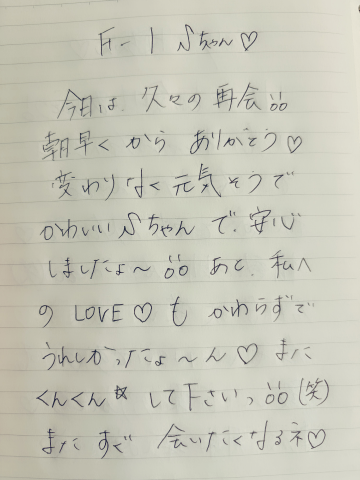 F-1 Sちゃん♡
今日は、久々の再会!!
朝早くからありがとう♡
変わりなく元気そうで
かわいいSちゃんで、安心
しましたょ～!! あと、私へ
のLOVE♡も かわらずで
うれしかったょ～ん♡ また
くんくん して下さいっ!! (笑)
またすぐ 会いたくなるネ♡